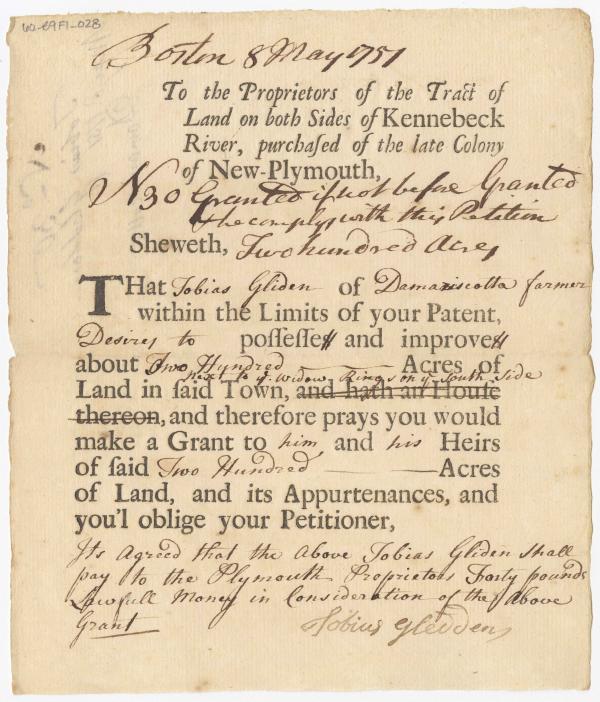 60-89F1-028
Boston 8 May 1751
To the Proprietors of the Tract of
Land on both Sides of Kennebeck
River, purchaſed of the late Colony
of New-Plymouth,
N 30 Granted if not before Granted
& he comply with this Petition
Sheweth, Two hundred Acres
THat Tobias Gliden of Damariscotta farmer
within the Limits of your Patent,
Desires to poſſeſſe and improve
about Two Hundred Acres of
next to ye widow Kings on ye South Side
Land in ſaid Town, and hath an Houſe
thereon, and therefore prays you would
make a Grant to him and his Heirs
of ſaid Two Hundred Acres
of Land, and its Appurtenances, and
you'l oblige your Petitioner,
Its Agreed that the above Tobias Gliden shall
pay to the Plymouth Proprietors Forty pounds
Lawfull Money in Consideration of the Above
Grant
Tobius Gledden